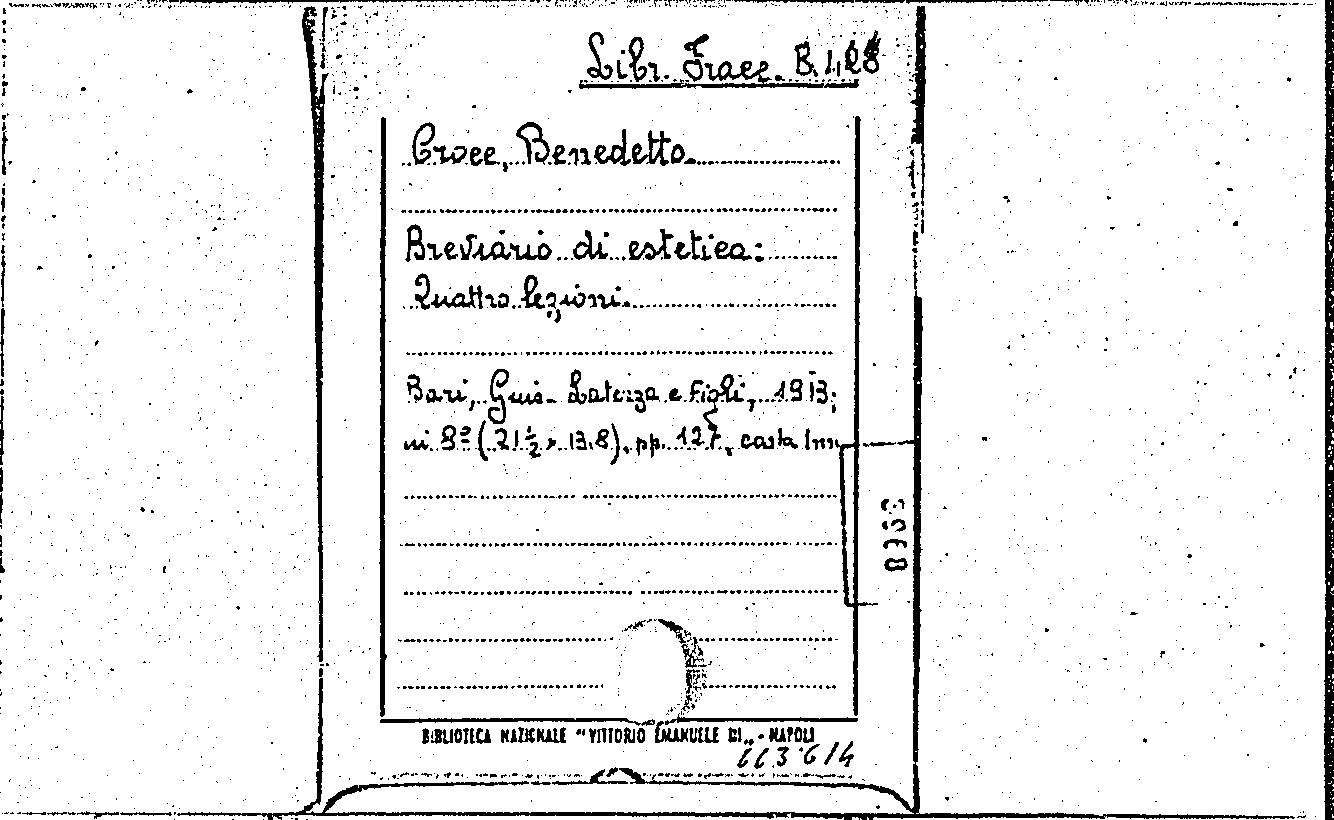 Libr. Fracc. B. 1,
Croce, Benedetto.
Breviario di estetica:
Quattro lezioni.
Bari, Gius. Laterza e Figli, 1913;
in 8º (21½ x 13,8), pp. 127,
BIBLIOTECA NAZIONALE "VITTORIO EMANUELE III„ - NAPOLI